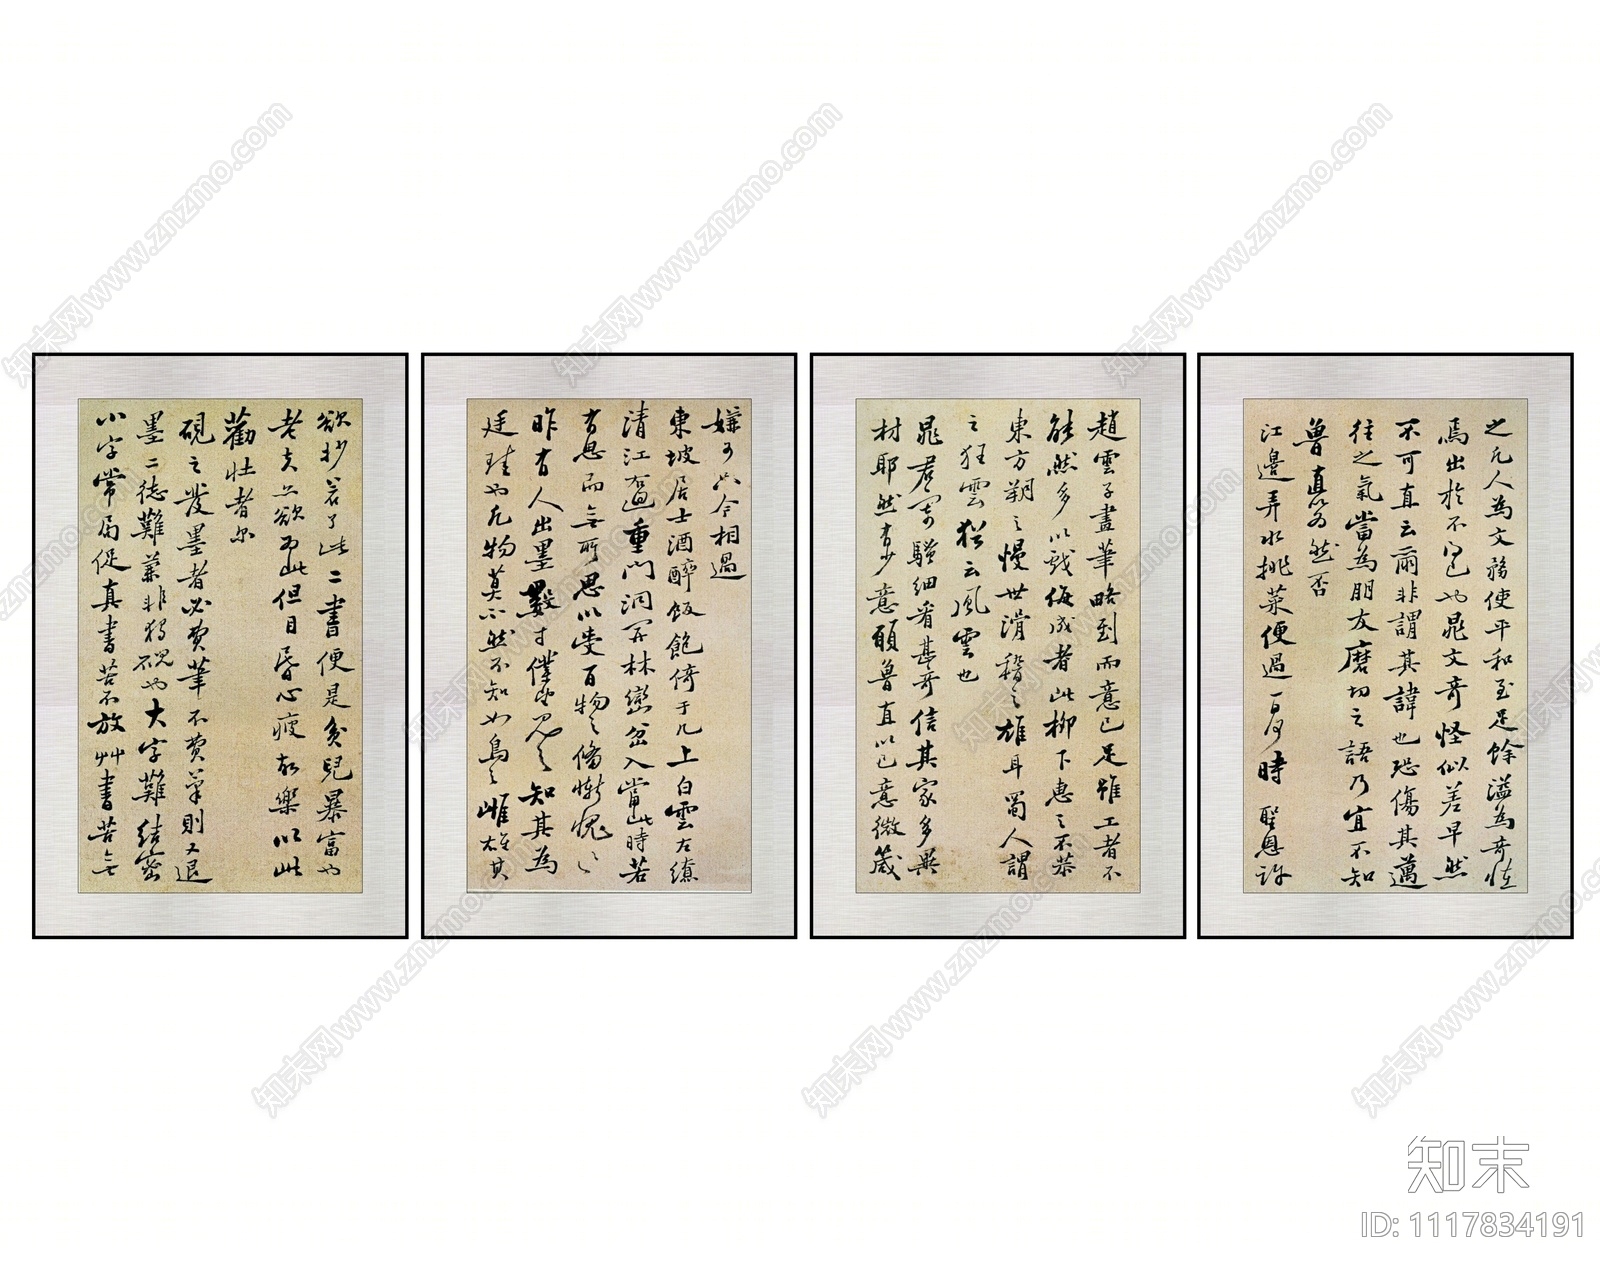 欲抄若了此二書便是貧兒暴富也
老夫亦欲為此但目昏心疲故樂以此
勸壯者爾
硯之發墨者必費筆不費筆則又退
墨二德難兼非獨硯也大字難結密
小字常局促真書苦不放艸書苦無
嫌可只今相過
東坡居士酒醉飯飽倚于几上白雲左繚
清江右洄重門洞開林巒坌入當此時若
有思而無所思以受百物之備慚愧々
昨有人出墨數寸僕望見之知其為
廷珪也凡物莫不然不知如鳥之雌雄其
趙雲子畫筆略到而意已足雖工者不
能然多以戲侮成者此柳下惠之不恭
東方朔之慢世滑稽之雄耳蜀人謂
之狂雲猶云風雲也
晁君寄騷細看甚奇信其家多異
材耶然有少意願魯直以己意微箴
之凡人為文務使平和至足餘溢為奇怪
焉出於不得已也晁文奇怪似差早然
不可直云爾非謂其諱也恐傷其邁
往之氣當為朋友磨切之語乃宜不知
魯直以為然否
江邊弄水挑菜便過一日時聖恩許
知末网www.znzmo.com
知末
ID: 1117834191